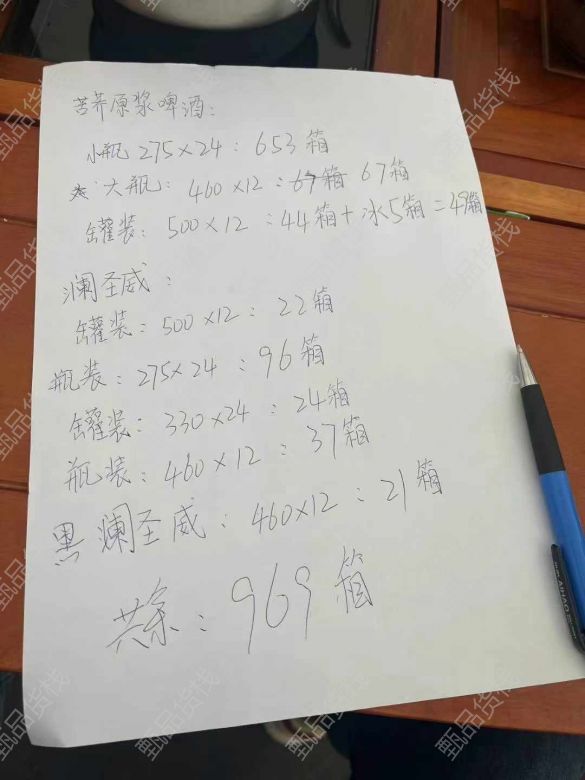 苦荞原浆啤酒:
小瓶 275×24 : 653箱
大瓶: 460×12 : 67箱 67箱
罐装: 500×12 : 44箱+冰5箱=49箱
澜圣威:
罐装: 500×12 : 22箱
瓶装: 275×24 : 96箱
罐装: 330×24 : 24箱
瓶装: 460×12 : 37箱
黑 澜圣威: 460×12 : 21箱
共余: 969箱
甄品货栈